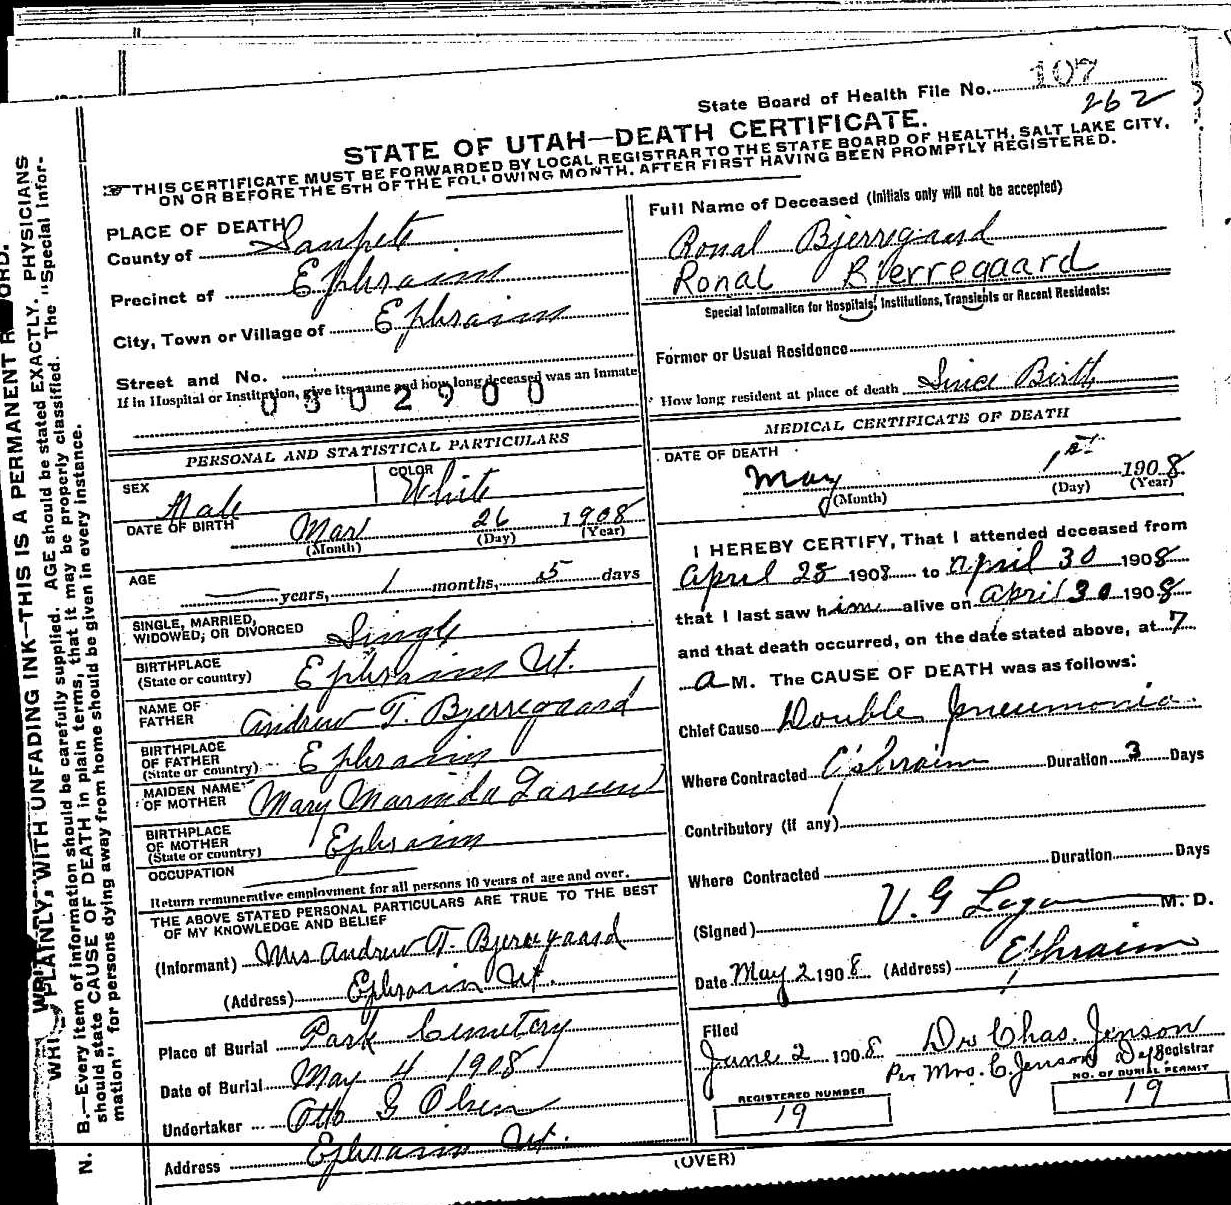 State Board of Health File No. 107
262
STATE OF UTAH—DEATH CERTIFICATE.
THIS CERTIFICATE MUST BE FORWARDED BY LOCAL REGISTRAR TO THE STATE BOARD OF HEALTH, SALT LAKE CITY,
ON OR BEFORE THE 5TH OF THE FOLLOWING MONTH, AFTER FIRST HAVING BEEN PROMPTLY REGISTERED.
PLACE OF DEATH
County of Sanpete
Precinct of Ephraim
City, Town or Village of Ephraim
Street and No.
If in Hospital or Institution, give its name and how long deceased was an inmate
0302900
PERSONAL AND STATISTICAL PARTICULARS
SEX Male COLOR White
DATE OF BIRTH Mar 26 1908
(Month) (Day) (Year)
AGE years, 1 months, 5 days
SINGLE, MARRIED,
WIDOWED, OR DIVORCED Single
BIRTHPLACE
(State or country) Ephraim Ut.
NAME OF
FATHER Andrew T. Bjerregaard
BIRTHPLACE
OF FATHER
(State or country) Ephraim
MAIDEN NAME
OF MOTHER Mary Marinda Larsen
BIRTHPLACE
OF MOTHER
(State or country) Ephraim
OCCUPATION
Return remunerative employment for all persons 10 years of age and over.
THE ABOVE STATED PERSONAL PARTICULARS ARE TRUE TO THE BEST
OF MY KNOWLEDGE AND BELIEF
(Informant) Mrs Andrew T. Bjerregaard
(Address) Ephraim Ut.
Place of Burial Park Cemetery
Date of Burial May 4 1908
Undertaker Otto G Olsen
Address Ephraim Ut.
Full Name of Deceased (Initials only will not be accepted)
Ronal Bjerregaard
Ronal Bierregaard
Special Information for Hospitals, Institutions, Transients or Recent Residents:
Former or Usual Residence
How long resident at place of death Since Birth
MEDICAL CERTIFICATE OF DEATH
DATE OF DEATH
May 1st 1908
(Month) (Day) (Year)
I HEREBY CERTIFY, That I attended deceased from
April 28 1908 to April 30 1908
that I last saw him alive on April 30 1908
and that death occurred, on the date stated above, at 7
a M. The CAUSE OF DEATH was as follows:
Chief Cause Double Pneumonia
Where Contracted Ephraim Duration 3 Days
Contributory (if any)
Where Contracted Duration Days
(Signed) U. G. M. D.
Date May 2 1908 (Address) Ephraim
Filed
June 2 1908 Dr Chas. Jenson
Per Mrs. C. Jenson Dep Registrar
REGISTERED NUMBER
19
NO. OF BURIAL PERMIT
19
(OVER)
WRITE PLAINLY, WITH UNFADING INK—THIS IS A PERMANENT RECORD.
N. B.—Every item of information should be carefully supplied. AGE should be stated EXACTLY. PHYSICIANS
should state CAUSE OF DEATH in plain terms, that it may be properly classified. The "Special Infor-
mation" for persons dying away from home should be given in every instance.